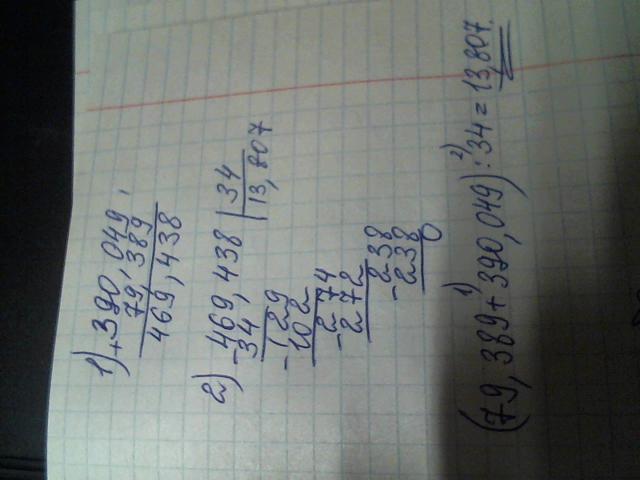 1) +390,049
79,389
469,438
2) -469,438 | 34
34 | 13,807
-129
102
-274
272
-238
-238
0
(79,389 + 1) 390,049) 2) : 34 = 13,807.